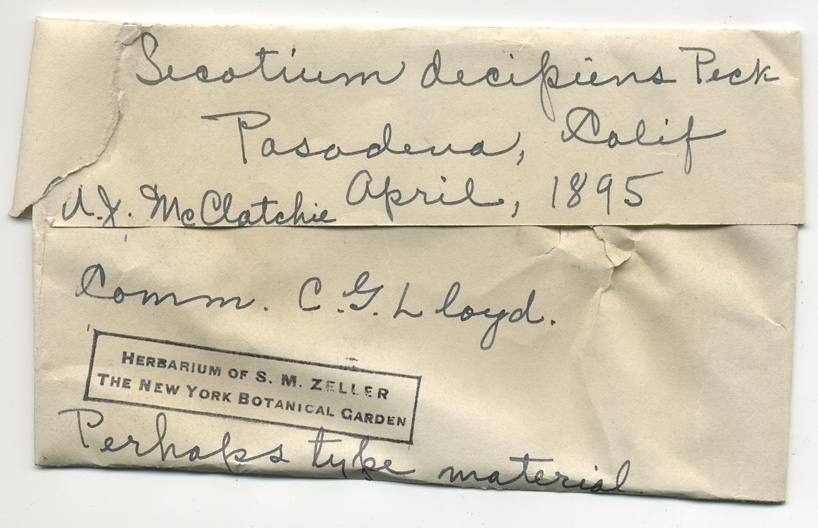 Secotium decipiens Peck
Pasadena, Calif
April, 1895
A. J. McClatchie
Comm. C. G. Lloyd.
HERBARIUM OF S. M. ZELLER
THE NEW YORK BOTANICAL GARDEN
Perhaps type material